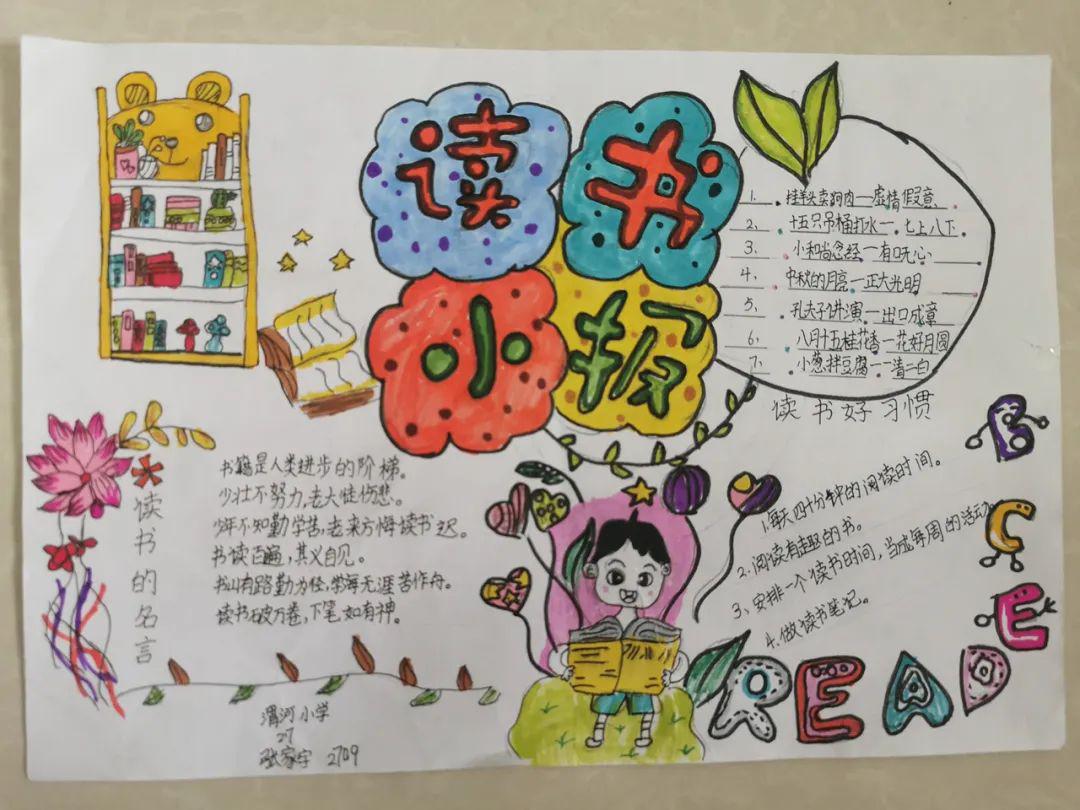 读书
小报
1、挂羊头卖狗肉—虚情假意
2、十五只吊桶打水—七上八下。
3、小和尚念经—有口无心
4、中秋的月亮—正大光明
5、孔夫子讲演—出口成章
6、八月十五桂花香—花好月圆
7、小葱拌豆腐—一清二白
读书好习惯
1.每天四十分钟的阅读时间。
2.阅读有趣的书。
3、安排一个读书时间，当成每周的活动
4.做读书笔记。
读书的名言
书籍是人类进步的阶梯。
少壮不努力,老大徒伤悲。
少年不知勤学苦,老来方悔读书迟。
书读百遍，其义自见。
书山有路勤为径,学海无涯苦作舟。
读书破万卷,下笔如有神。
B
C
E
READ
渭河小学
27
张家宇 2709